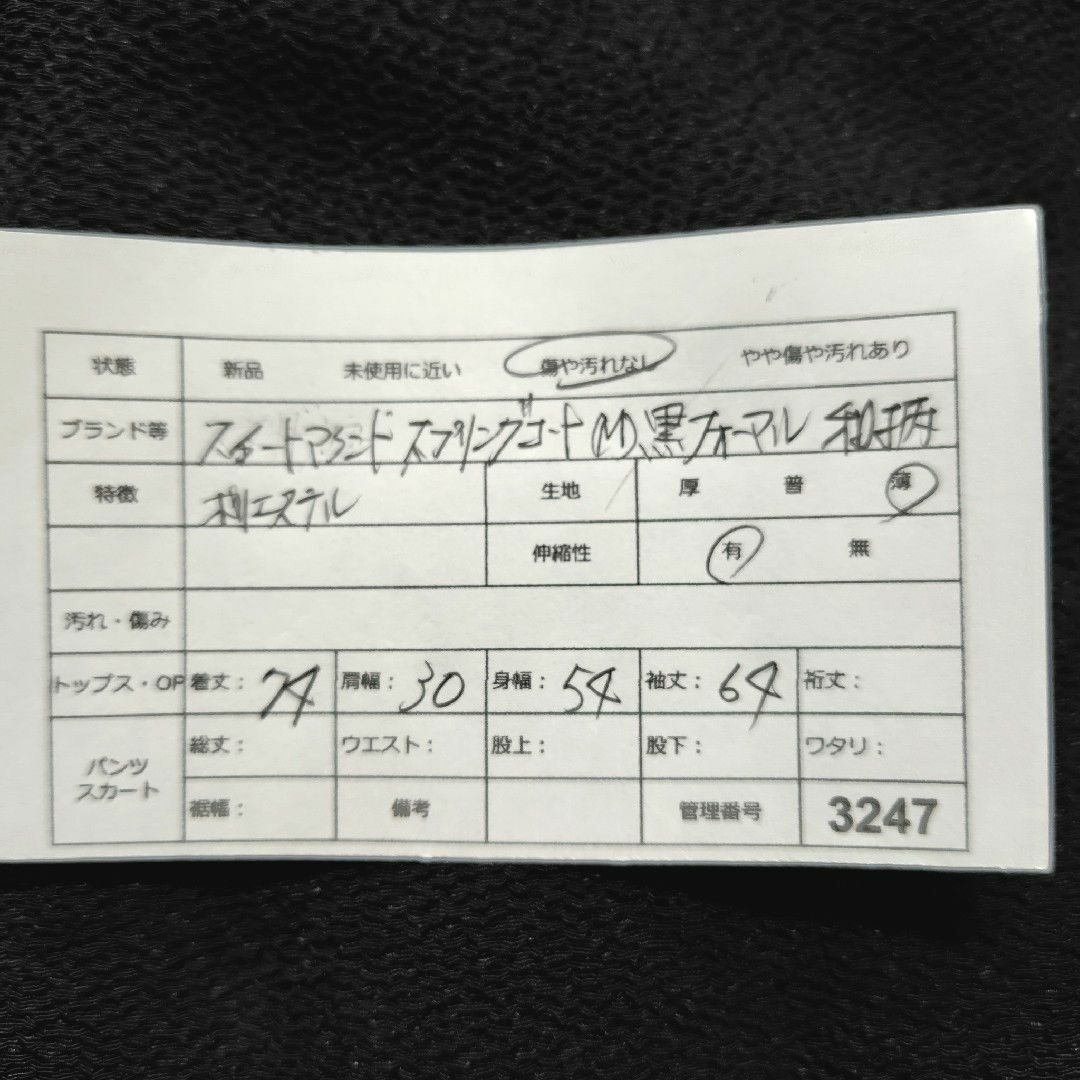 状態 新品 未使用に近い 傷や汚れなし やや傷や汚れあり
ブランド等 スプリングコート (M) 黒フォーマル 和柄
特徴 ポリエステル 生地 厚 普 薄
伸縮性 有 無
汚れ・傷み
トップス・OP 着丈: 74 肩幅: 30 身幅: 54 袖丈: 64 裄丈:
パンツ スカート 総丈: ウエスト: 股上: 股下: ワタリ:
裾幅: 備考 管理番号 3247